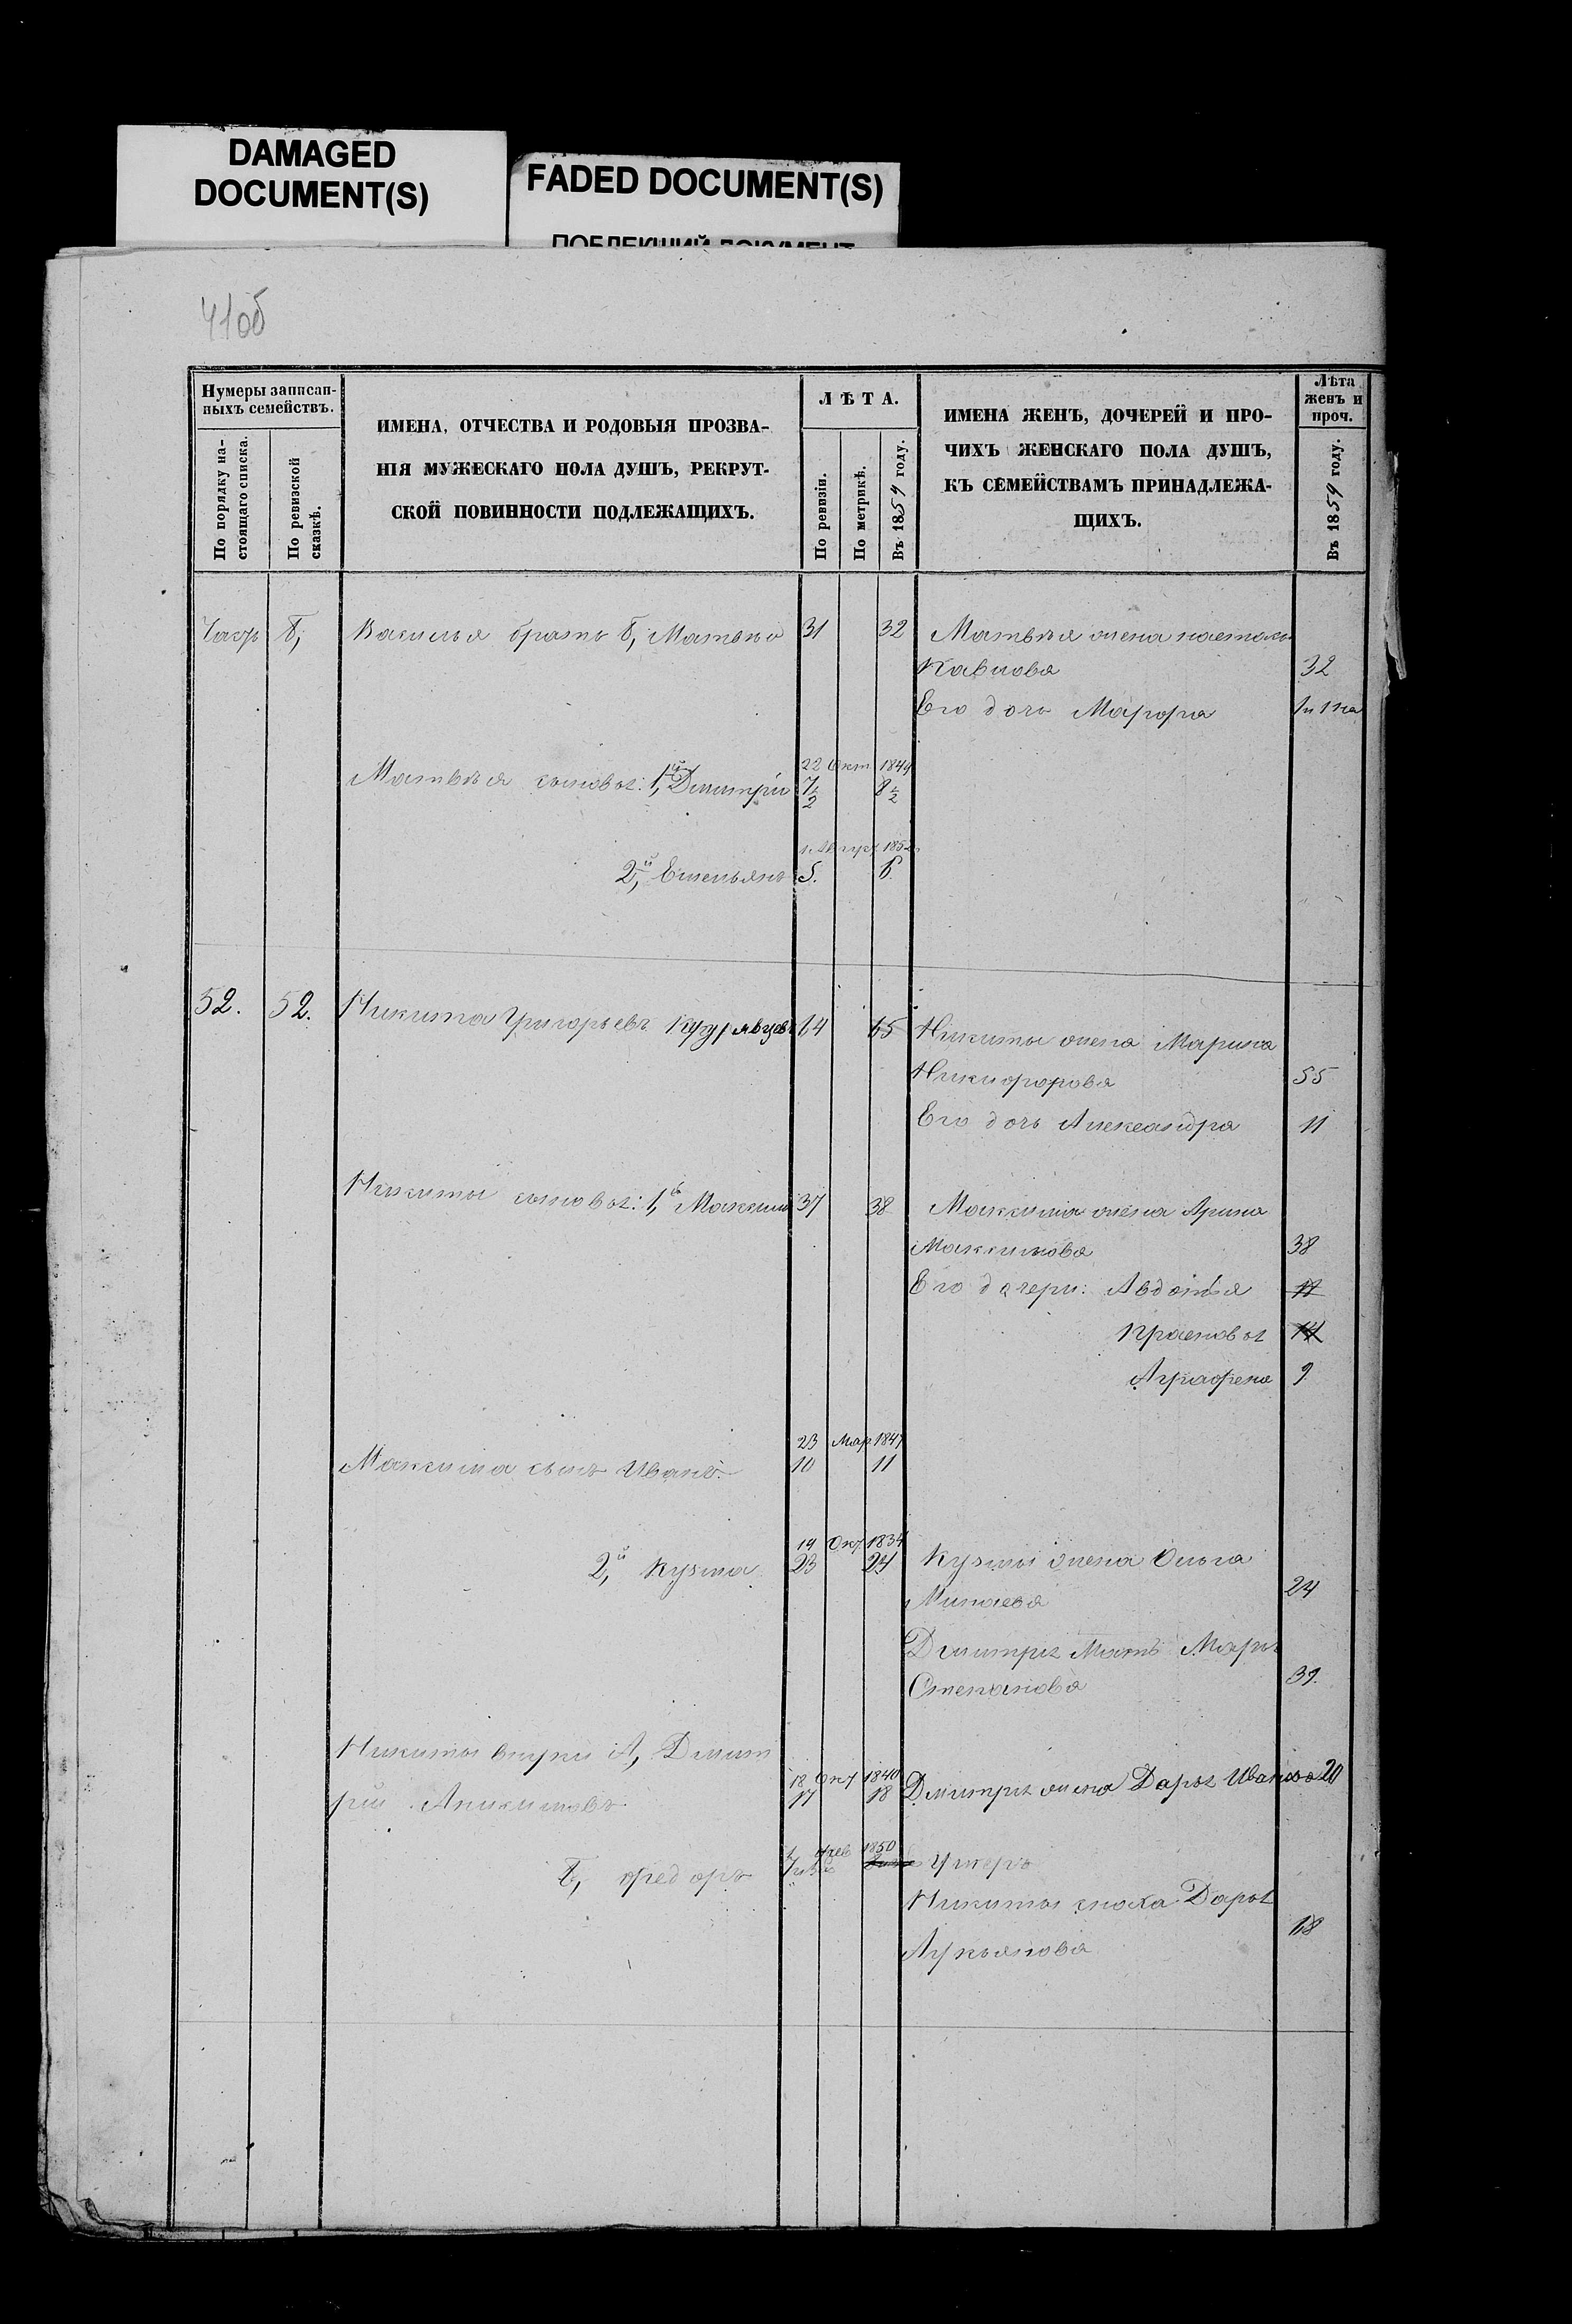 DAMAGED
DOCUMENT(S)
FADED DOCUMENT(S)
ПОБЛЕКШИЙ ДОКУМЕНТ
41об
Нумеры записан-
ныхъ семействъ.
По порядку на-
стоящаго списка.
По ревизской
сказкѣ.
ИМЕНА, ОТЧЕСТВА И РОДОВЫЯ ПРОЗВА-
НІЯ МУЖЕСКАГО ПОЛА ДУШЪ, РЕКРУТ-
СКОЙ ПОВИННОСТИ ПОДЛЕЖАЩИХЪ.
ЛѢТА.
По ревизіи.
По метрикѣ.
Въ 1859 году.
ИМЕНА ЖЕНЪ, ДОЧЕРЕЙ И ПРО-
ЧИХЪ ЖЕНСКАГО ПОЛА ДУШЪ,
КЪ СЕМЕЙСТВАМЪ ПРИНАДЛЕЖА-
ЩИХЪ.
Лѣта
женъ и
проч.
Въ 1859 году.
Василья братъ б, Матвѣй 31 32 Матвѣя жена
Павлова 32
Его дочь Марфа
22 Окт 1849
Матвѣя сыновья: 1й Дмитрій 7½ 8½
2й Емельянъ 5. 6
52. 52. Никита Григорьевъ 64 65 Никиты жена Марина
Никифорова 55
Его дочь Александра 11
Никиты сыновья: 1й Максимъ 37 38 Максима жена Арина
Максимова 38
Его дочери: Авдотья
Прасковья
Аграфена 9
23 Мар 1847
Максима сынъ Иванъ. 10 11
14 Окт 1834
2й Кузма 23 24 Кузмы жена Ольга
Минаева 24
Дмитрія Мать Марья
Степанова 39.
Никиты внуки А, Дмит
18 Окт 1840
рій Аникимовъ 17 18 Дмитрія жена Дарья Иванова 20
1850
Б, Федоръ Умеръ
Никиты сноха Дарья
Лукьянова 18